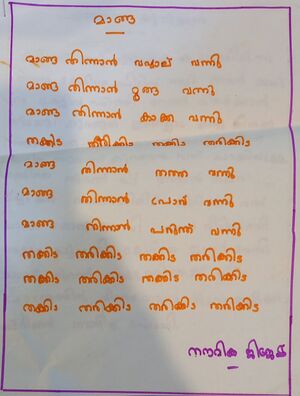 മാങ്ങ
മാങ്ങ തിന്നാൻ വവ്വാല് വന്നു
മാങ്ങ തിന്നാൻ മൂങ്ങ വന്നു
മാങ്ങ തിന്നാൻ കാക്ക വന്നു
തക്കിട തരിക്കിട തക്കിട തരിക്കിട
മാങ്ങ തിന്നാൻ തത്ത വന്നു
മാങ്ങ തിന്നാൻ പ്രാവ് വന്നു
മാങ്ങ തിന്നാൻ പരുന്ത് വന്നു
തക്കിട തരിക്കിട തക്കിട തരിക്കിട
തക്കിട തരിക്കിട തക്കിട തരിക്കിട
തക്കിട തരിക്കിട തരിക്കിട തരിക്കിട